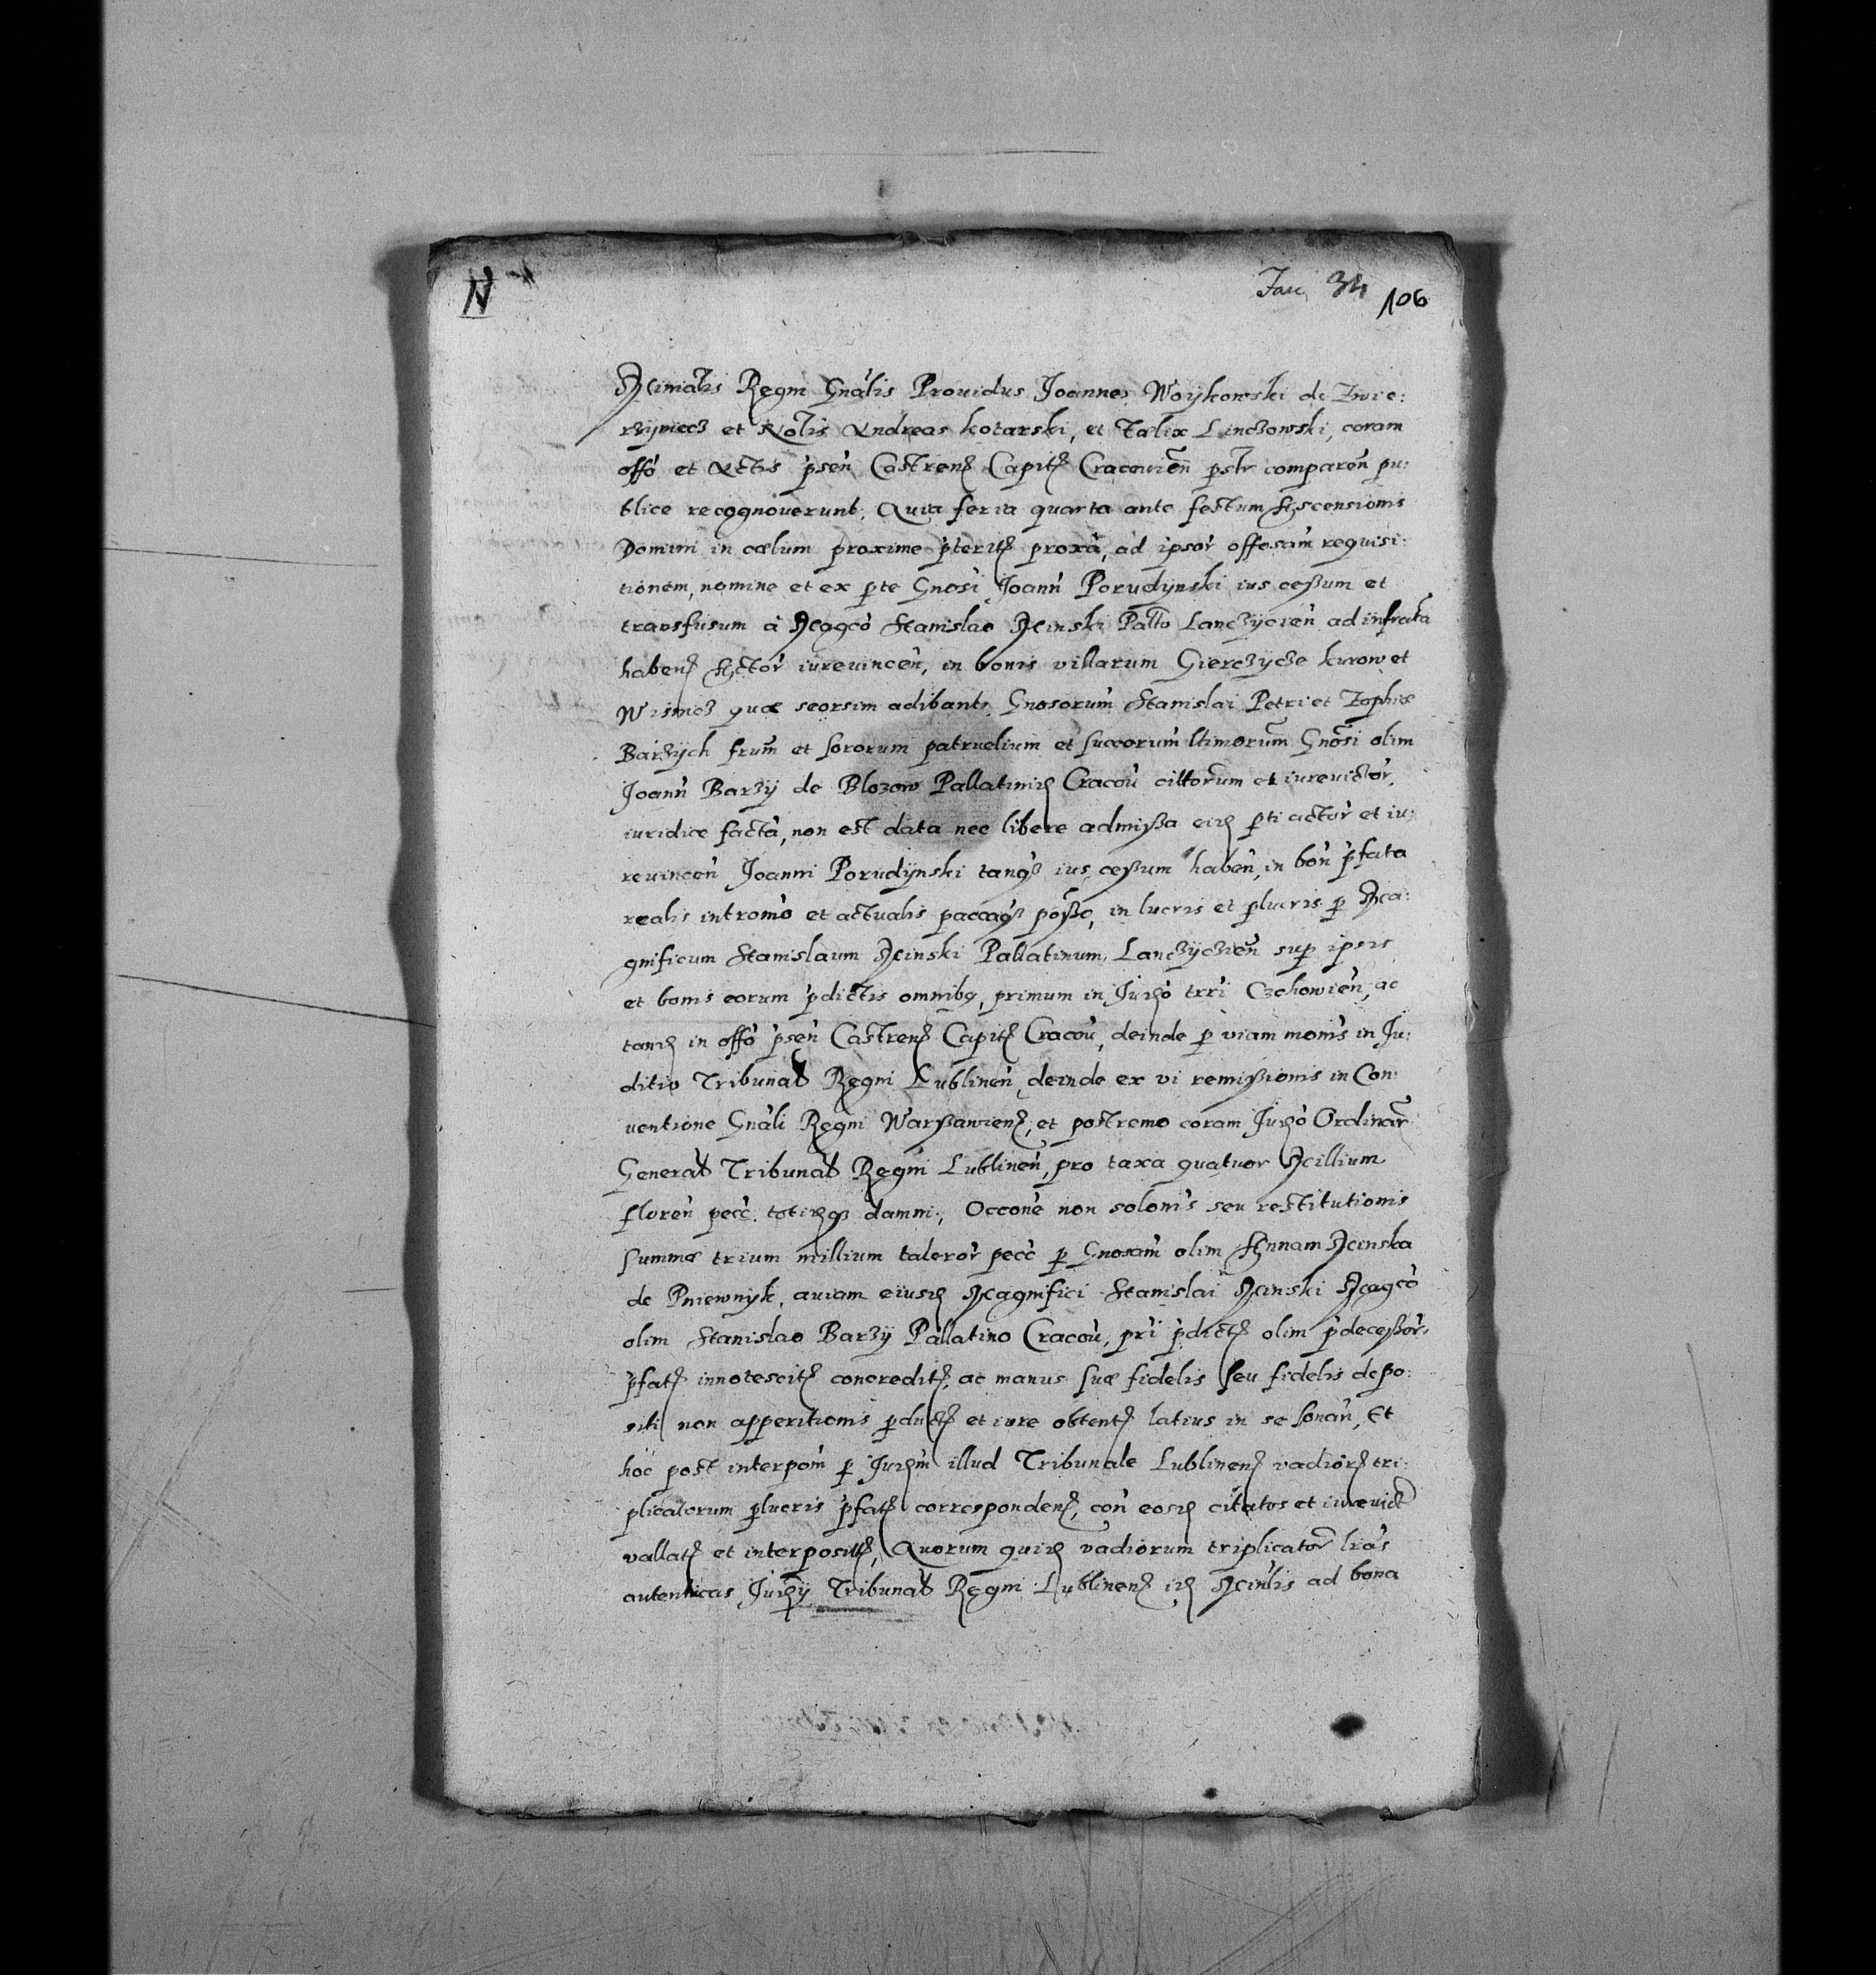 N
Fasc. 34 106
Ministerialis Regni Gnalis Prouidus Joannes Woykowski de Zwie:
rzyniecz et Nobilis Andreas Kotarski, et Fælix Linczowski, coram
offo et Actis psen Castren Capit Cracouien pslr comparen pu:
blice recognouerunt. Quia feria quarta ante festum Ascensionis
Domini in cælum proxime pterit proxa, ad ipsor offosam requisi:
tionem, nomine et ex pte Gnosi Joann Porudynski ius cessum et
transfusum a Magco Stanislao Minski Pallo Lanczycien ad infrata
haben Actor iureuincen, in bonis villarum Gierczycze Kurow et
Wisnicz quæ seorsim adibant. Gnosorum Stanislai Petri et Zophiæ
Barzych frum et sororum patruelium et succorum ltimorum Gnosi olim
Joann Barzy de Blozow Pallatinid Cracou cittorum et iureuictor,
iuridice facta, non est data nec libere admissa eid pti actor et iu:
reuincen Joanni Porudynski tanq ius cessum haben, in bon pfata
realis intromo et actualis paccaq posso, in lucris et plucris p Ma:
gnificum Stanislaum Minski Pallatinum Lanczyczien sup ipsis
et bonis eorum pdictis omnibq, primum in Judo trri Czchowien, ac
tand in offo psen Castren Capit Cracou, deinde p viam monis in Ju:
ditio Tribunal Regni Lublinen, deinde ex vi remissionis in Con:
uentione Gnali Regni Warssawien, et postremo coram Judo Ordinar
General Tribunal Regni Lublinen, pro taxa quatuor Millium
floren pecc. totidq damni, Occone non solonis seu restitutionis
summæ trium millium taleror pecc p Gnosam olim Annam Minska
de Pniewnyk, auiam eiusd Magnifici Stanislai Minski Magco
olim Stanislao Barzy Pallatino Cracou, pri pdict olim pdecessor,
pfat innotescit concredit, ac manus suæ fidelis seu fidelis depo:
siti non apperitionis pduct et iure obtent latius in se sonan, Et
hoc post interpom p Judm illud Tribunale Lublinen vadior tri:
plicatorum plucris pfat corresponden, con eosd citatos et iureuict
vallat et interposit, Quorum quid vadiorum triplicator lras
autenticas Judy Tribunal Regni Lublinen id Minlis ad bona